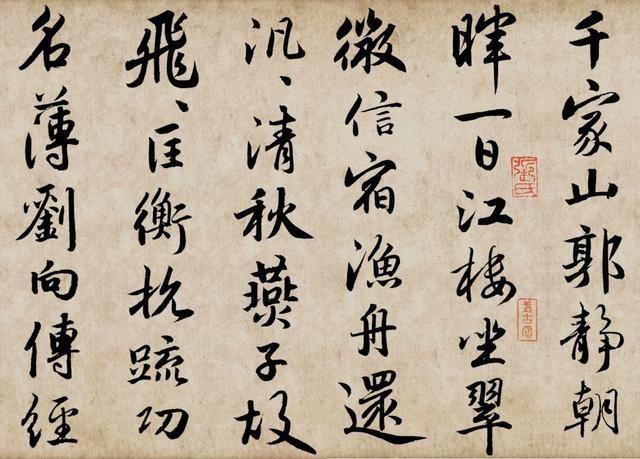 千家山郭静朝
暉一日江樓坐翠
微信宿漁舟還
汎〻清秋燕子故
飛〻匡衡抗疏功
名薄劉向傳經